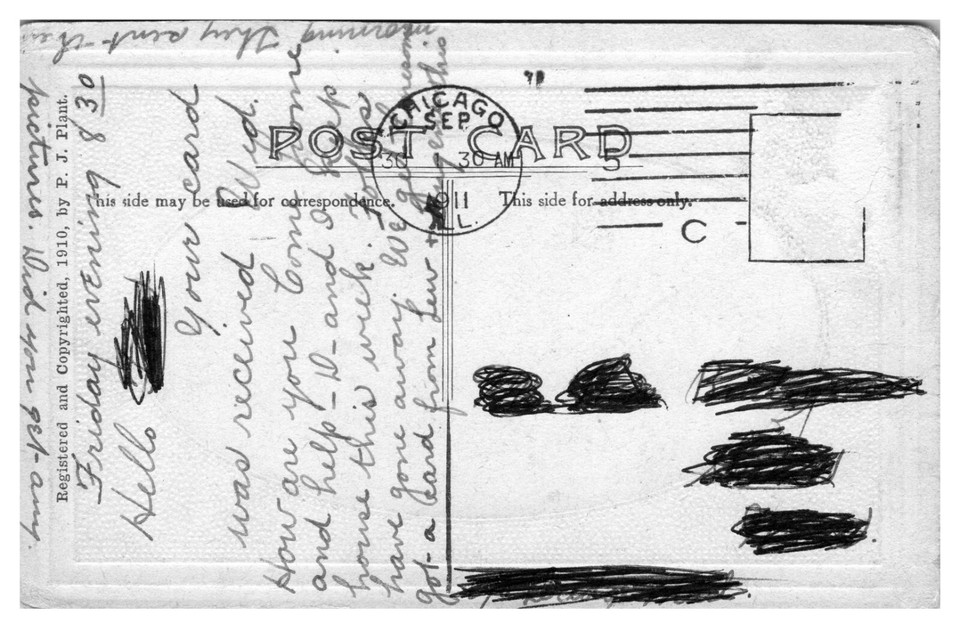 POST CARD
This side may be used for correspondence.
This side for address only.
CHICAGO
SEP
30
30 AM
1911
ILL.
5
C
Registered and Copyrighted, 1910, by P. J. Plant.
Friday evening 8/30
Hello
Your card
was received Wed.
How are you Come home
and help - D - and I keep
house this week. Folks
have gone away. We
got a card from Lew +
this
morning They sent them
pictures. Did you get any.